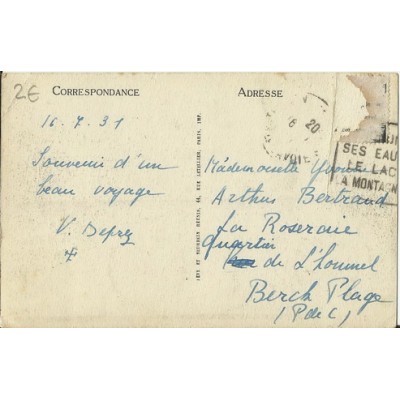 2€
CORRESPONDANCE
ADRESSE
16.7.31
Souvenir d'un
beau voyage
V. Deprez
20
SES EAU
LE LAC
LA MONTAGN
Mademoiselle Yvonne
Arthus Bertrand
La Roseraie
Quartier
de L'hommel
Berck Plage
(P de C)